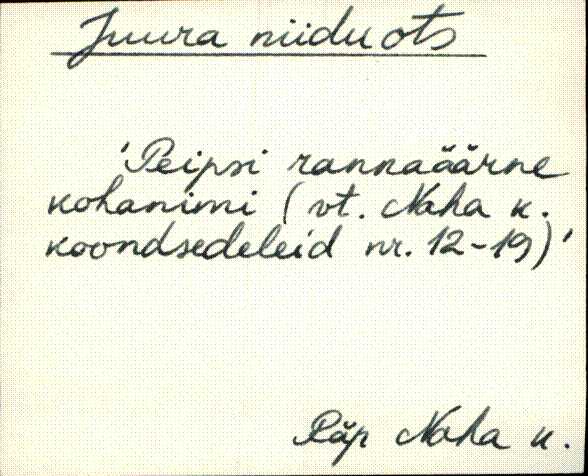 Juura niidu ots
'Peipsi rannaäärne
kohanimi (vt. Naha k.
koondsedeleid nr. 12-19)'
Räp Naha k.